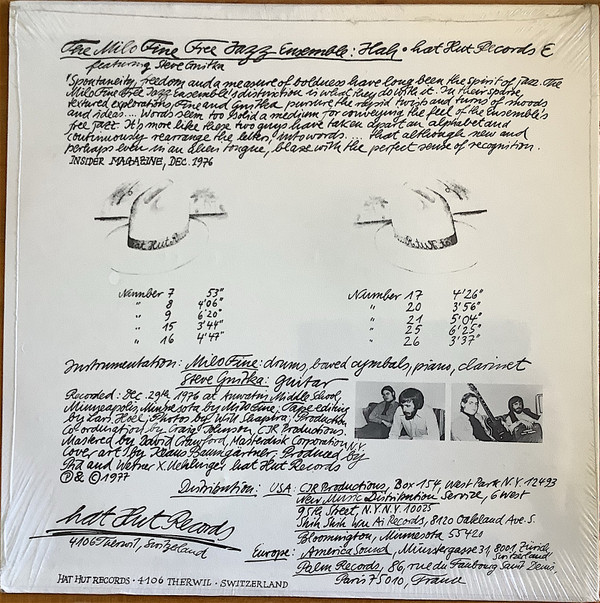 The Milo Fine Free Jazz Ensemble: Hah · hat Hut Records E
featuring Steve Gnitka
"Spontaneity, freedom and a measure of boldness have long been the spirit of jazz. The
Milo Fine Free Jazz Ensemble's distinction is what they do with it. In their sparse,
textured explorations, Fine and Gnitka pursue the rapid twists and turns of moods
and ideas.... Words seem too solid a medium for conveying the feel of the ensemble's
free jazz. It's more like these two guys have taken apart an alphabet and
continuously rearrange the letters into words.... that although new and
perhaps even in an alien tongue, blaze with the perfect sense of recognition.
INSIDER MAGAZINE, DEC. 1976
Number 7 53"
" 8 4'06"
" 9 6'20"
" 15 3'44"
" 16 4'47"
Number 17 4'26"
" 20 3'56"
" 21 5'04"
" 25 6'25"
" 26 3'37"
Instrumentation: Milo Fine: drums, bowed cymbals, piano, clarinet
Steve Gnitka: guitar
Recorded: Dec. 29th 1976 at Anwatin Middle School,
Minneapolis, Minnesota by Milo Fine; Tape editing
by Lars Hoel; Photos by Will Shapira; Production
Co-ordination by Craig Johnson, CJR Productions.
Mastered by David Crawford, Masterdisk Corporation, N.Y.
Cover art by Klaus Baumgartner. Produced by
Pia and Werner X. Uehlinger. hat Hut Records
℗ & © 1977
Distribution: USA: CJR Productions, Box 154, West Park N.Y. 12493
New Music Distribution Service, 6 West
95th Street, N.Y. N.Y. 10025
Shih Shih Wu Ai Records, 8120 Oakland Ave. S.
Bloomington, Minnesota 55420
Europe: America Sound, Münstergasse 31, 8001 Zürich, Switzerland
Palm Records, 86, rue du Faubourg Saint Denis,
Paris 75010, France
hat Hut Records
4106 Therwil, Switzerland
HAT HUT RECORDS · 4106 THERWIL · SWITZERLAND